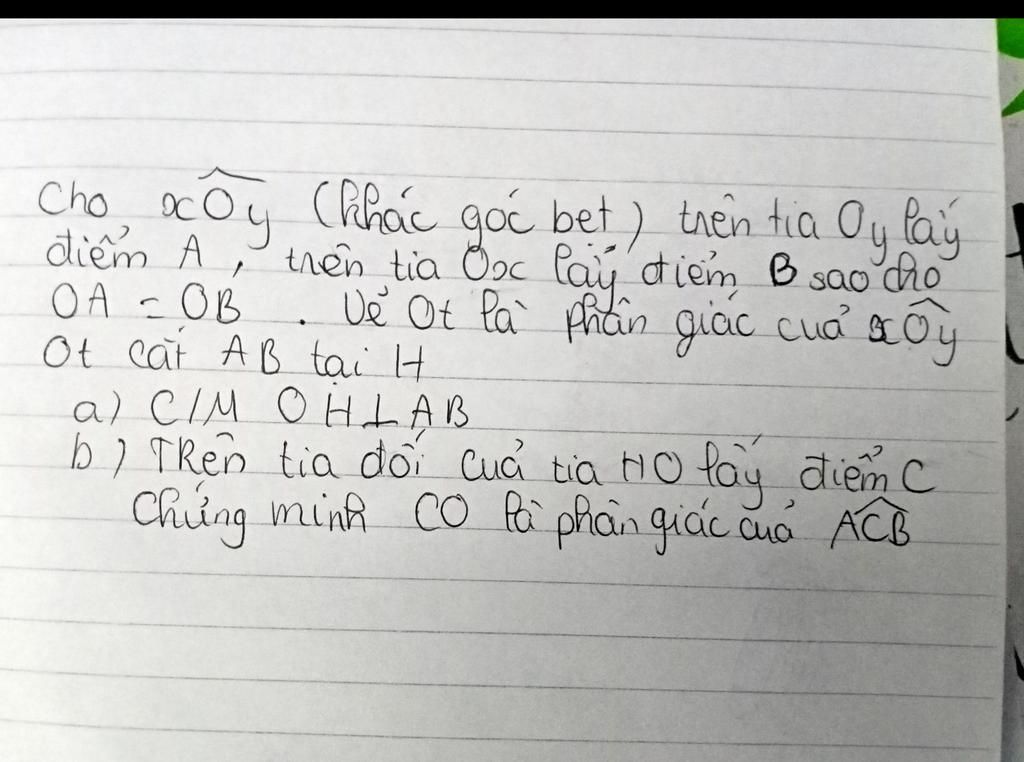 Cho xOy (khác góc bet) trên tia Oy lấy
điểm A, trên tia Ox lấy điểm B sao cho
OA = OB . Vẽ Ot là phân giác cuả xOy
Ot cắt AB tại H
a) C/M OH⊥AB
b) TRên tia đối cuả tia HO lấy điểm C
Chứng minh CO là phân giác cuả ACB